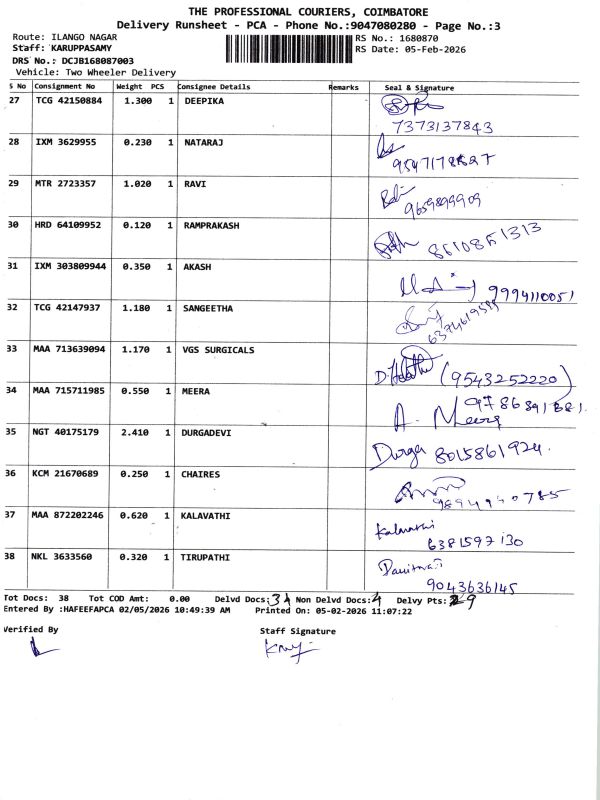 THE PROFESSIONAL COURIERS, COIMBATORE
Delivery Runsheet - PCA - Phone No.:9047080280 - Page No.:3
Route: ILANGO NAGAR RS No.: 1680870
Staff: KARUPPASAMY RS Date: 05-Feb-2026
DRS No.: DCJB168087003
Vehicle: Two Wheeler Delivery
S No Consignment No Weight PCS Consignee Details Remarks Seal & Signature
27 TCG 42150884 1.300 1 DEEPIKA
7373137843
28 IXM 3629955 0.230 1 NATARAJ
29 MTR 2723357 1.020 1 RAVI
9659899909
30 HRD 64109952 0.120 1 RAMPRAKASH
8610851313
31 IXM 303809944 0.350 1 AKASH
9994110051
32 TCG 42147937 1.180 1 SANGEETHA
33 MAA 713639094 1.170 1 VGS SURGICALS
(9543252220)
34 MAA 715711985 0.550 1 MEERA
A. Meera
35 NGT 40175179 2.410 1 DURGADEVI
Durga 8015861924.
36 KCM 21670689 0.250 1 CHAIRES
37 MAA 872202246 0.620 1 KALAVATHI
Kalavathi
6381597130
38 NKL 3633560 0.320 1 TIRUPATHI
9043636145
Tot Docs: 38 Tot COD Amt: 0.00 Delvd Docs:34 Non Delvd Docs:4 Delvy Pts:29
Entered By :HAFEEFAPCA 02/05/2026 10:49:39 AM Printed On: 05-02-2026 11:07:22
Verified By Staff Signature